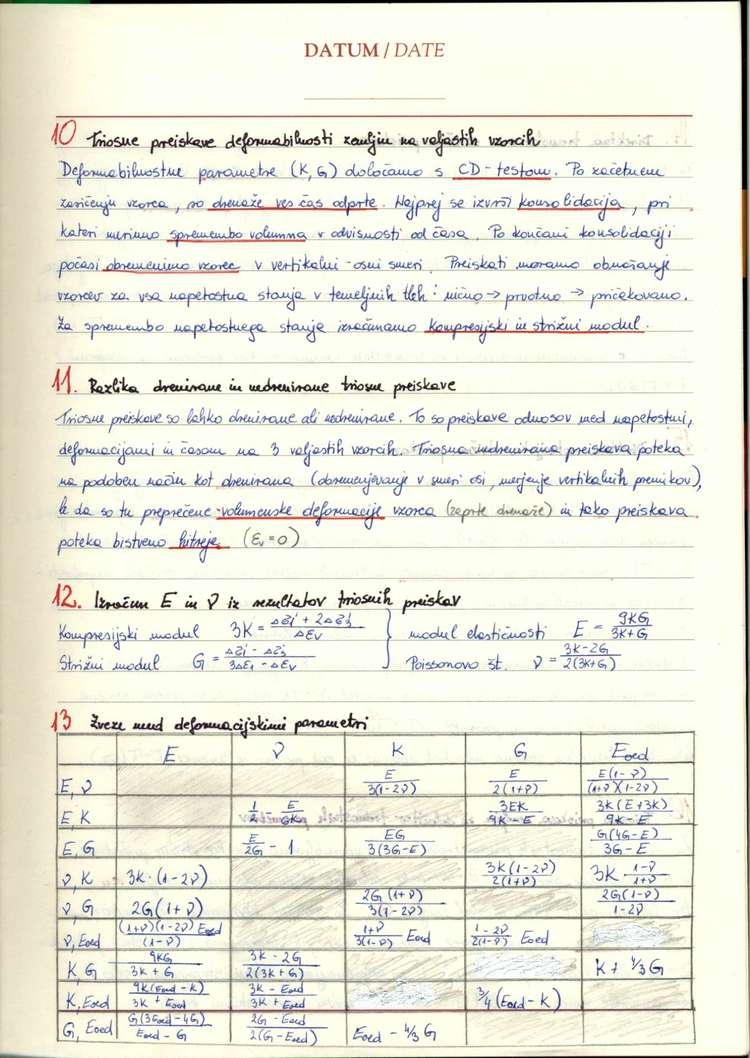 DATUM / DATE
10 Triosne preiskave deformabilnosti zemljin na valjastih vzorcih
Deformabilnostne parametre (K, G) določamo s CD-testom. Po začetnem
zasičenju vzorca, so drenaže ves čas odprte. Najprej se izvrši konsolidacija, pri
kateri merimo spremembo volumna v odvisnosti od časa. Po končani konsolidaciji
počasi obremenimo vzorec v vertikalni-osni smeri. Preiskati moramo obnašanje
vzorcev za vsa napetostna stanja v temeljnih tleh: nično → prvotno → pričakovano.
Za spremembo napetostnega stanja izračunamo kompresijski in strižni modul.
11. Razlika drenirane in nedrenirane triosne preiskave
Triosne preiskave so lahko drenirane ali nedrenirane. To so preiskave odnosov med napetostmi,
deformacijami in časom na 3 valjastih vzorcih. Triosna nedrenirana preiskava poteka
na podoben način kot drenirana (obremenjevanje v smeri osi, merjenje vertikalnih premikov),
le da so tu preprečene volumenske deformacije vzorca (zaprte drenaže) in tako preiskava
poteka bistveno hitreje. (εv = 0)
12. Izračun E in ν iz rezultatov triosnih preiskav
Kompresijski modul 3K = (Δσ1' + 2Δσ3')/Δεv } modul elastičnosti E = 9KG/(3K+G)
Strižni modul G = (Δσ1' - Δσ3')/(3Δε1 - Δεv) Poissonovo št. ν = (3K-2G)/(2(3K+G))
13 Zveze med deformacijskimi parametri
E ν K G Eoed
E, ν E/(3(1-2ν)) E/(2(1+ν)) E(1-ν)/((1+ν)(1-2ν))
E, K 1/2 - E/6K 3EK/(9K-E) 3K(E+3K)/(9K-E)
E, G E/2G - 1 EG/(3(3G-E)) G(4G-E)/(3G-E)
ν, K 3K·(1-2ν) 3K(1-2ν)/(2(1+ν)) 3K (1-ν)/(1+ν)
ν, G 2G(1+ν) 2G(1+ν)/(3(1-2ν)) 2G(1-ν)/(1-2ν)
ν, Eoed (1+ν)(1-2ν)Eoed/(1-ν) (1+ν)/(3(1-ν)) Eoed (1-2ν)/(2(1-ν)) Eoed
K, G 9KG/(3K+G) (3K-2G)/(2(3K+G)) K + 4/3 G
K, Eoed 9K(Eoed-K)/(3K+Eoed) (3K-Eoed)/(3K+Eoed) 3/4 (Eoed-K)
G, Eoed G(3Eoed-4G)/(Eoed-G) (2G-Eoed)/(2(G-Eoed)) Eoed - 4/3 G